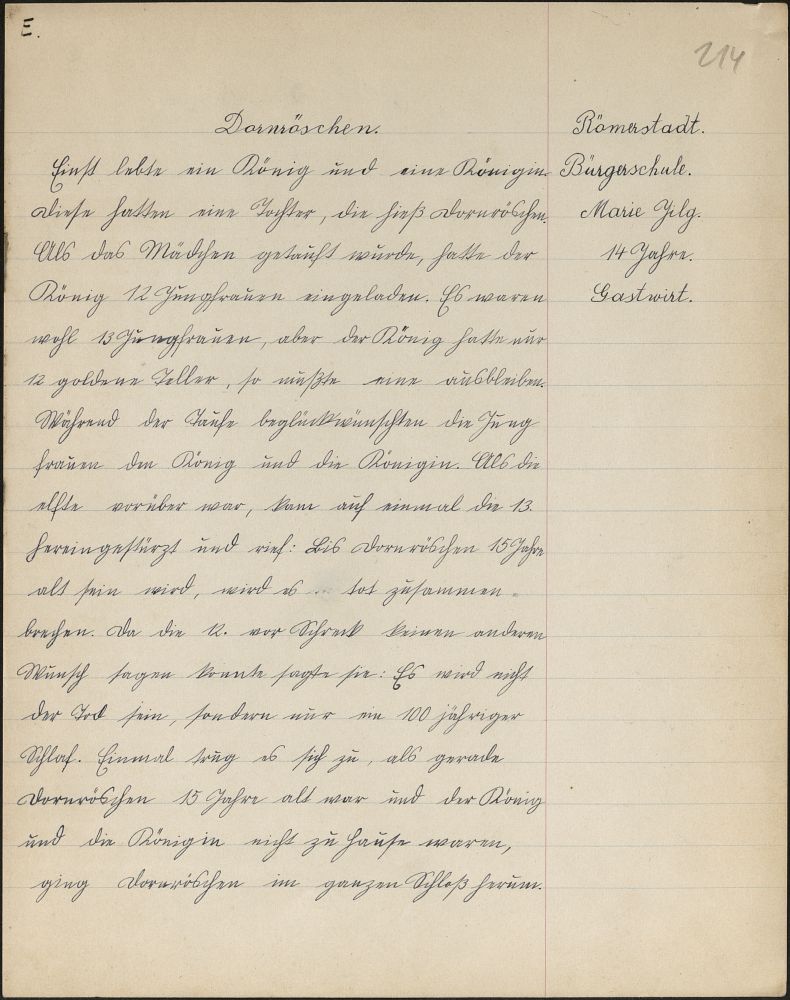 E.
214
Dornröschen.
Einst lebte ein König und eine Königin.
Diese hatten eine Tochter, die hieß Dornröschen.
Als das Mädchen getauft wurde, hatte der
König 12 Jungfrauen eingeladen. Es waren
wohl 13 Jungfrauen, aber der König hatte nur
12 goldene Teller, so mußte eine ausbleiben.
Während der Taufe beglückwünschten die Jung
frauen den König und die Königin. Als die
elfte vorüber war, kam auf einmal die 13.
hereingestürzt und rief: Bis Dornröschen 15 Jahre
alt sein wird, wird es tot zusammen
brechen. Da die 12. vor Schreck keinen anderen
Wunsch sagen konnte sagte sie: Es wird nicht
der Tod sein, sondern nur ein 100 jähriger
Schlaf. Einmal trug es sich zu, als gerade
Dornröschen 15 Jahre alt war und der König
und die Königin nicht zu Hause waren,
ging Dornröschen im ganzen Schloß herum.
Römerstadt.
Bürgerschule.
Marie Jilg.
14 Jahre.
Gastwirt.